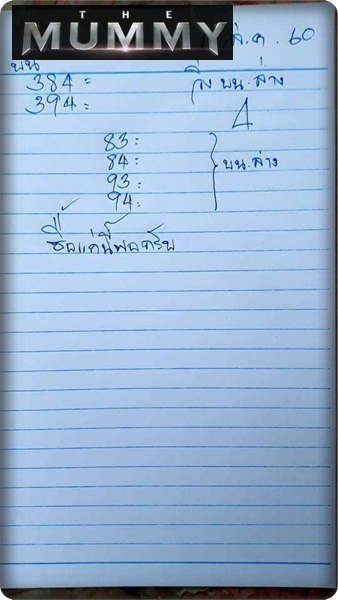 THE
MUMMY
ส.ค. 60
บน
384 =
394 =
วิ่ง บน.ล่าง
4
83 :
84 :
93 :
94 :
บน.ล่าง
ซื้อแค่นี้พอครับ